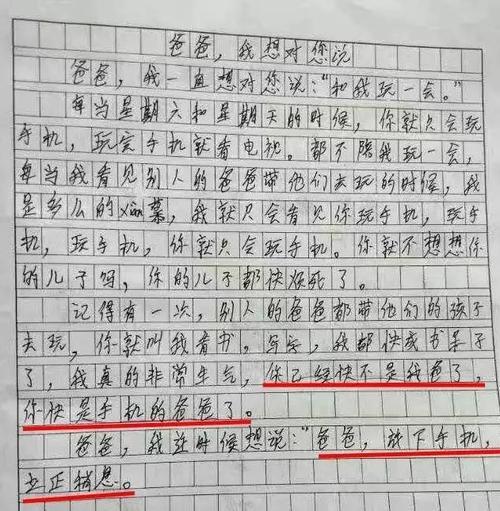 爸爸，我想对您说
爸爸，我一直想对您说："和我玩一会。"
每当星期六和星期天的时候，你就只会玩
手机，玩完手机就看电视。都不陪我玩一会，
每当我看见别人的爸爸带他们去玩的时候，我
是多么的xian慕，我就只会看见你玩手机，玩手
机，玩手机，你就只会玩手机。你就不想想你
的儿子吗，你的儿子都快烦死了。
记得有一次，别人的爸爸都带他们的孩子
去玩，你就叫我看书，写字，我都快成书呆子
了，我真的非常生气，你已经快不是我爸了，
你快是手机的爸爸了。
爸爸，我这时候想说："爸爸，放下手机，
立正稍息。